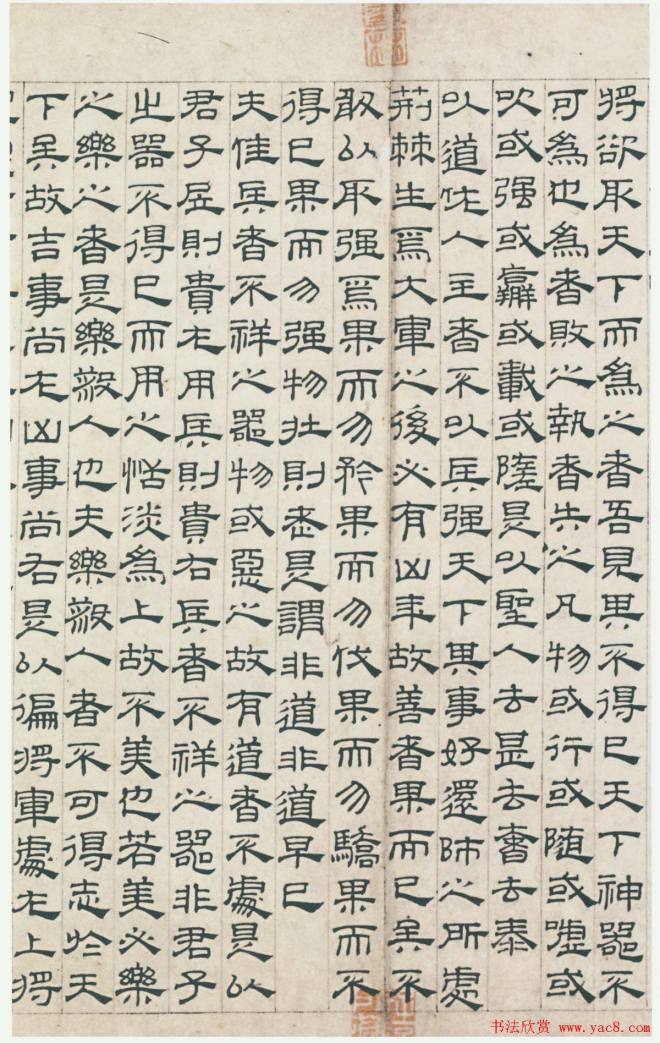 將欲取天下而為之者吾見其不得已天下神器不
可為也為者敗之執者失之凡物或行或隨或噓或
吹或强或羸或載或隳是以聖人去甚去奢去泰
以道佐人主者不以兵强天下其事好還師之所處
荊棘生焉大軍之後必有凶年故善者果而已矣不
敢以取强焉果而勿矜果而勿伐果而勿驕果而不
得已果而勿强物壯則老是謂非道非道早已
夫佳兵者不祥之器物或惡之故有道者不處是以
君子居則貴左用兵則貴右兵者不祥之器非君子
之器不得已而用之恬淡為上故不美也若美必樂
之樂之者是樂殺人也夫樂殺人者不可得志於天
下矣故吉事尚左凶事尚右是以偏將軍處左上將
书法欣赏 www.yac8.com